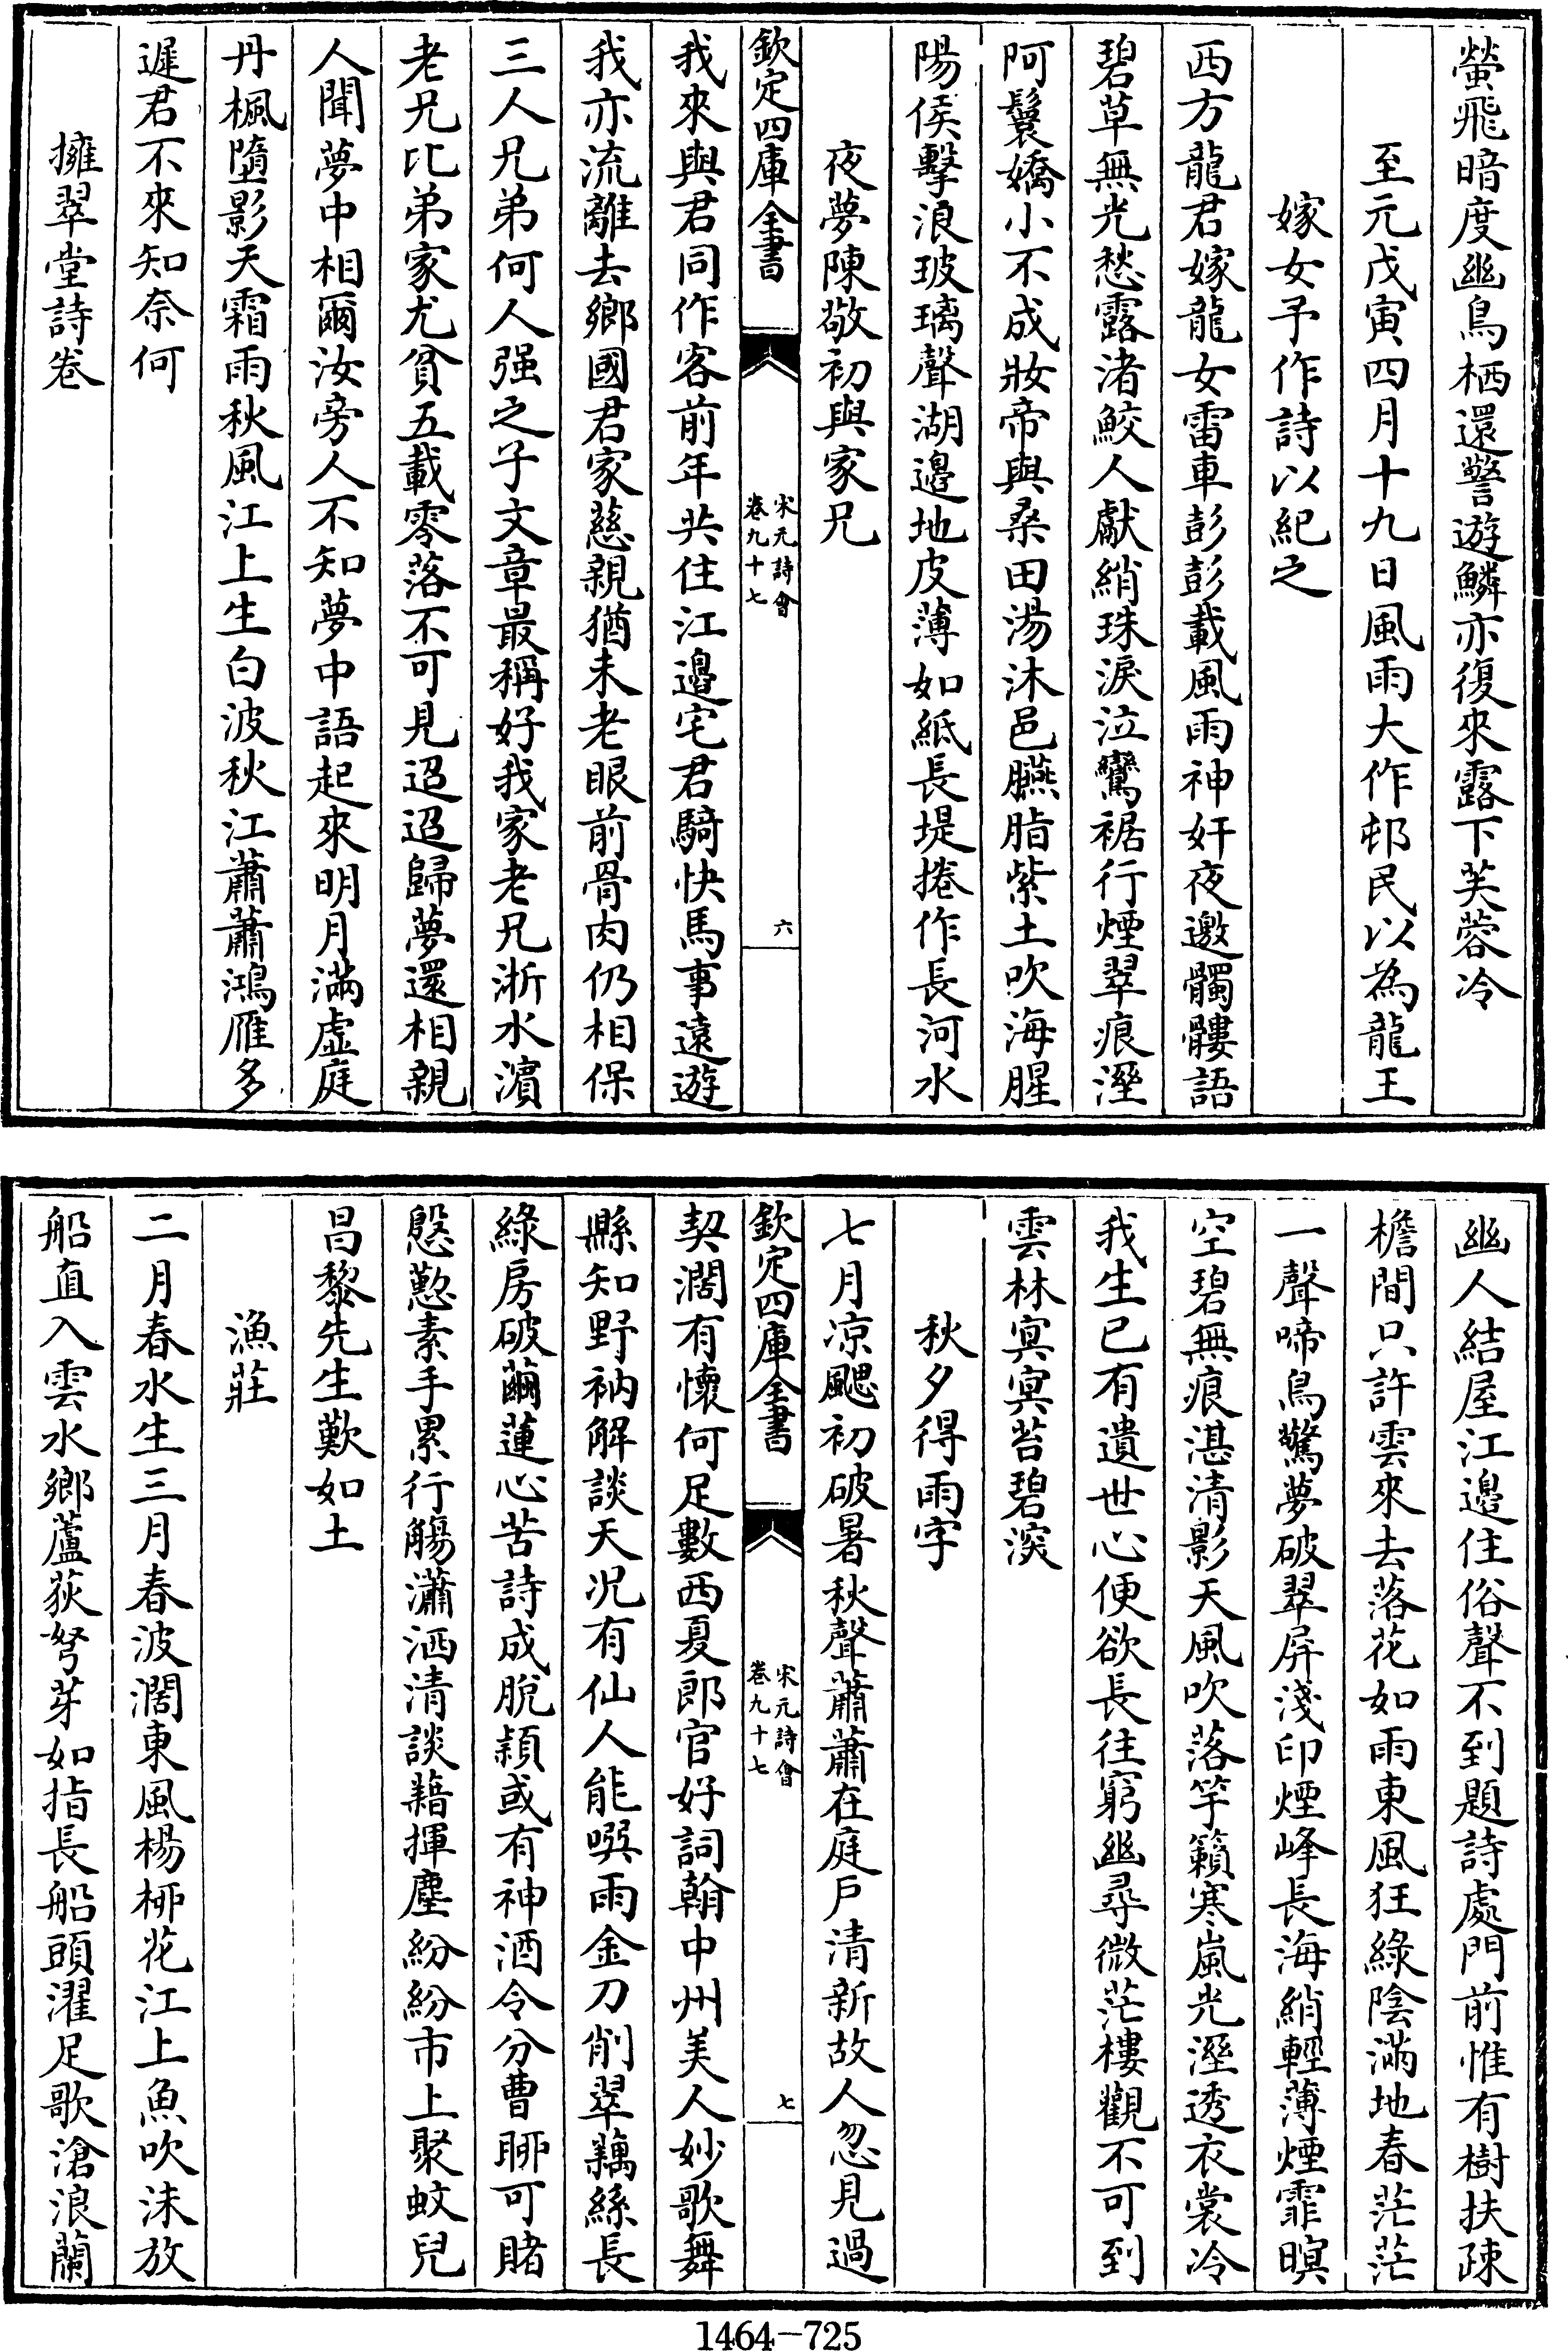 螢飛暗度幽鳥栖還警遊鱗亦復來露下芙蓉冷
至元戊寅四月十九日風雨大作邨民以為龍王
嫁女予作詩以紀之
西方龍君嫁龍女雷車彭彭載風雨神奸夜邀髑髏語
碧草無光愁露渚鮫人獻綃珠淚泣鸞裾行煙翠痕溼
阿鬟嬌小不成妝帝與桑田湯沐邑臙脂紫土吹海腥
陽侯擊浪玻璃聲湖邊地皮薄如紙長堤捲作長河水
夜夢陳敬初與家兄
欽定四庫全書
宋元詩會
卷九十七
六
我來與君同作客前年共住江邊宅君騎快馬事遠遊
我亦流離去鄉國君家慈親猶未老眼前骨肉仍相保
三人兄弟何人强之子文章最稱好我家老兄浙水濵
老兄比弟家尤貧五載零落不可見迢迢歸夢還相親
人聞夢中相爾汝旁人不知夢中語起來明月滿虛庭
丹楓墮影天霜雨秋風江上生白波秋江蕭蕭鴻雁多
遲君不來知奈何
擁翠堂詩卷
幽人結屋江邊住俗聲不到題詩處門前惟有樹扶疎
檐間只許雲來去落花如雨東風狂綠陰滿地春茫茫
一聲啼鳥驚夢破翠屏淺印煙峰長海綃輕薄煙霏暝
空碧無痕湛清影天風吹落竽籟寒嵐光溼透衣裳冷
我生已有遺世心便欲長往窮幽尋微茫樓觀不可到
雲林冥冥苔碧深
秋夕得雨字
七月凉颸初破暑秋聲蕭蕭在庭戶清新故人忽見過
欽定四庫全書
宋元詩會
卷九十七
七
契濶有懷何足數西夏郎官好詞翰中州美人妙歌舞
縣知野衲解談天况有仙人能噀雨金刀削翠藕絲長
綠房破繭蓮心苦詩成脫穎或有神酒令分曹聊可賭
慇懃素手累行觴瀟洒清談藉揮塵紛紛市上聚蚊兒
昌黎先生歎如土
漁莊
二月春水生三月春波濶東風楊柳花江上魚吹沫放
船直入雲水鄉蘆荻努芽如指長船頭濯足歌滄浪蘭
1464-725